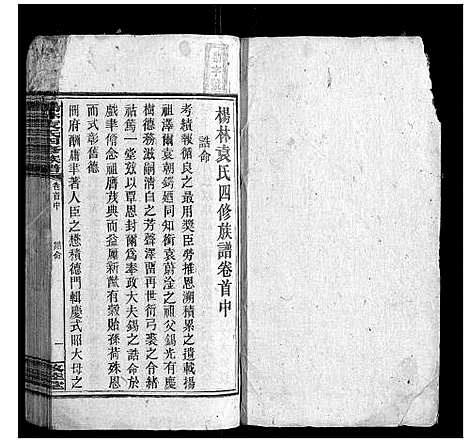 楊林袁氏四修族譜卷首中
誥命
考績報循良之最勞推恩溯積累之遺載揚
祖澤爾袁朝鍔廼同知銜袁蔚淦之祖父錫光有慶
樹德務滋嗣清白之芳聲澤留再世衍弓裘之令緒
祜篤一堂玆以覃恩封爾為奉政大夫錫之誥命於
戲聿念祖膺茂典而益厲新猷有榖貽孫荷殊恩
而式彰舊德
冊府酬庸聿著人臣之懋積德門輯慶式昭大母之
卷首中
誥命
一